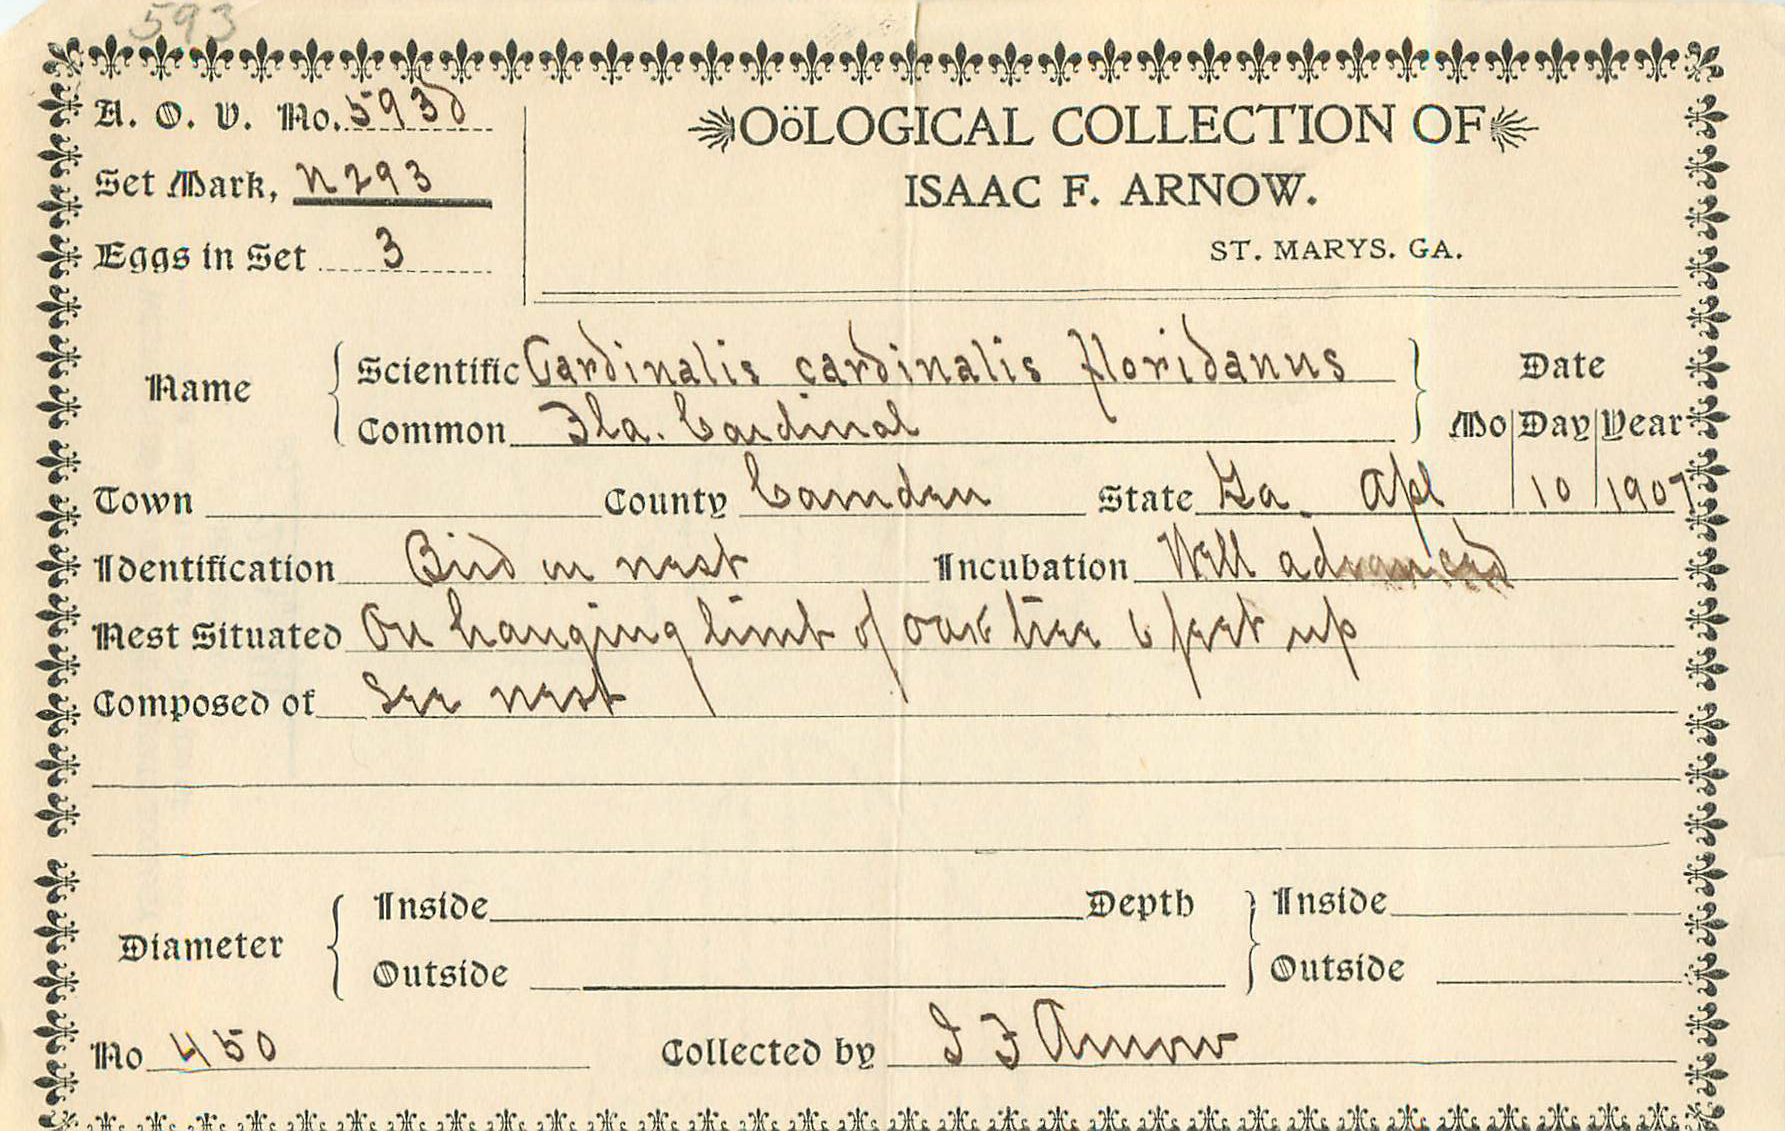 593
A. O. U. No. 593d
Set Mark, n293
Eggs in Set 3
OöLOGICAL COLLECTION OF
ISAAC F. ARNOW.
ST. MARYS. GA.
Name
Scientific Cardinalis cardinalis floridanus
Common Fla. Cardinal
Date
Mo Day Year
Town County Camden State Ga. Apl 10 1907
Identification Bird on nest Incubation Well advanced
Nest Situated On hanging limb of oak tree 6 feet up
Composed of See nest
Diameter
Inside Depth Inside
Outside Outside
No 450 Collected by I F Arnow